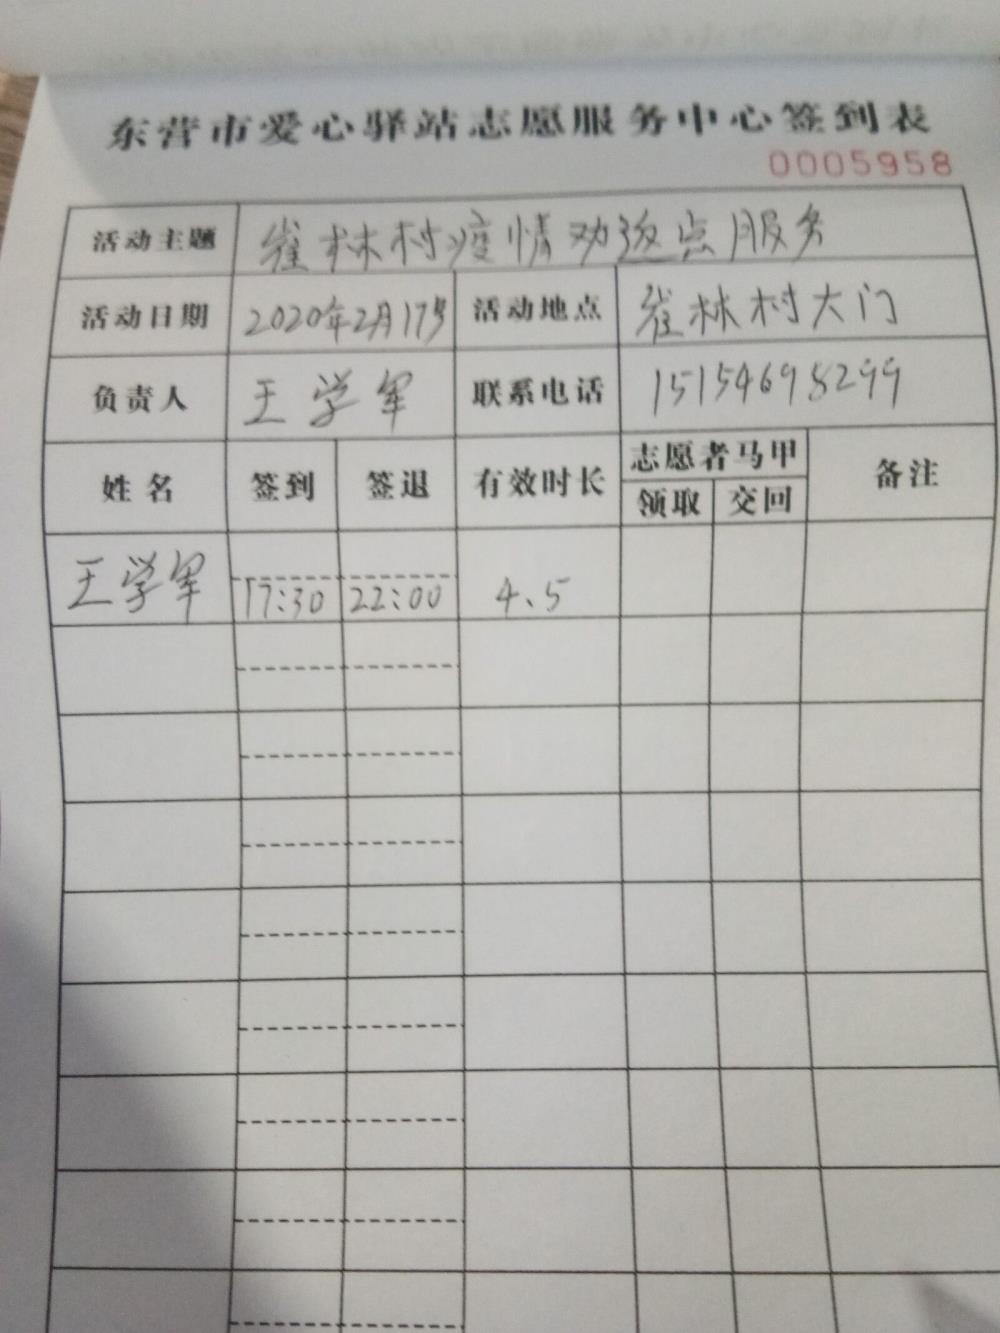 东营市爱心驿站志愿服务中心签到表
0005958
活动主题 崔林村疫情劝返点服务
活动日期 2020年2月17号 活动地点 崔林村大门
负责人 王学军 联系电话 15154698299
姓名 签到 签退 有效时长 志愿者马甲 备注
领取 交回
王学军 17:30 22:00 4、5